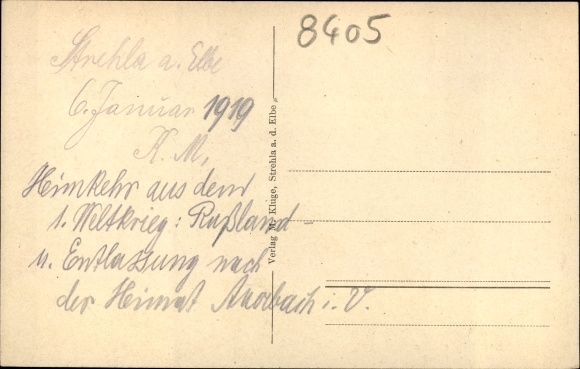 8405
Strehla a. Elbe
6. Januar 1919
K. M.
Heimkehr aus dem
1. Weltkrieg: Rußland –
u. Entlassung nach
der Heimat Auerbach i. V.
Verlag M. Kluge, Strehla a. d. Elbe